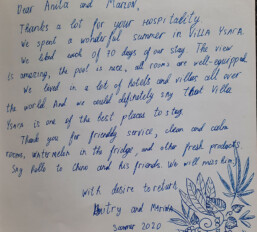 Dear Anita and Marion,
Thanks a lot for your hospitality
We spent a wonderful summer in VILLA YSARA
We liked each of 30 days of our stay. The view
is amazing, the pool is nice, all rooms are well-equipped
We lived in a lot of hotels and villas all over
the world And we could definitely say that Villa
Ysara is one of the best places to stay
Thank you for friendly service, clean and calm
rooms, watermelon in the fridge, and other fresh products.
Say hello to and his friends. We will miss
With desire to return,
and
Summer 2020